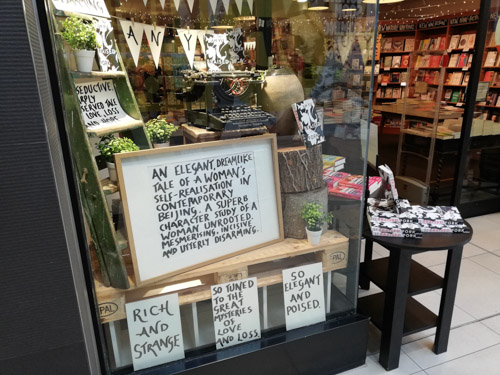 ANY
SEDUCTIVE,
LOVE, LOSS
AN ELEGANT, DREAMLIKE
TALE OF A WOMAN'S
SELF-REALISATION IN
CONTEMPORARY
BEIJING. A SUPERB
CHARACTER STUDY OF A
WOMAN UNROOTED.
MESMERISING, INCISIVE
AND UTTERLY DISARMING.
PAL
PAL
RICH
AND
STRANGE
SO TUNED
TO THE
GREAT
MYSTERIES
OF
LOVE
AND LOSS.
SO
ELEGANT
AND
POISED.